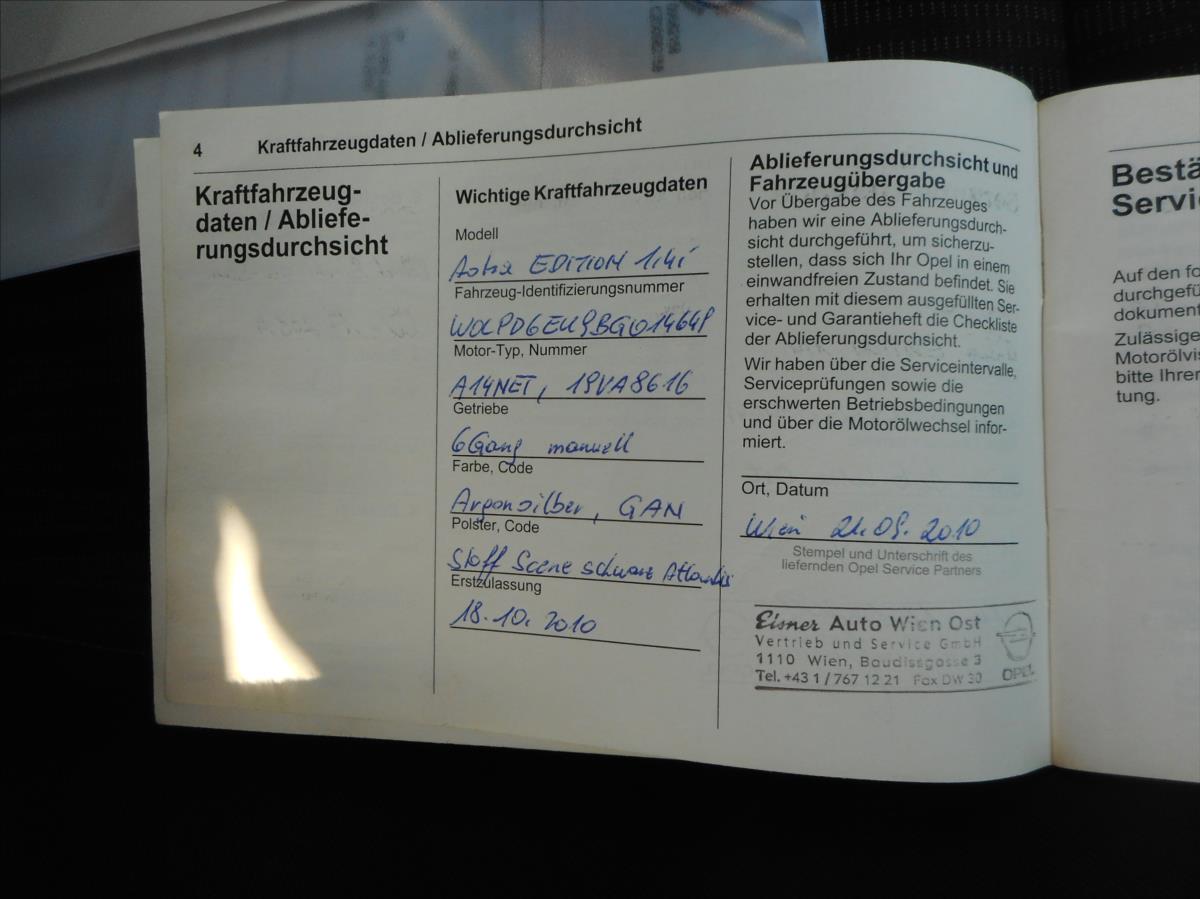 4 Kraftfahrzeugdaten / Ablieferungsdurchsicht
Kraftfahrzeug-
daten / Abliefe-
rungsdurchsicht
Wichtige Kraftfahrzeugdaten
Modell
Astra EDITION 1.4i
Fahrzeug-Identifizierungsnummer
Motor-Typ, Nummer
A14NET, 19VA8616
Getriebe
6Gang manuell
Farbe, Code
Argonsilber, GAN
Polster, Code
Stoff Scene schwarz Atlantis
Erstzulassung
18.10.2010
Ablieferungsdurchsicht und
Fahrzeugübergabe
Vor Übergabe des Fahrzeuges
haben wir eine Ablieferungsdurch-
sicht durchgeführt, um sicherzu-
stellen, dass sich Ihr Opel in einem
einwandfreien Zustand befindet. Sie
erhalten mit diesem ausgefüllten Ser-
vice- und Garantieheft die Checkliste
der Ablieferungsdurchsicht.
Wir haben über die Serviceintervalle,
Serviceprüfungen sowie die
erschwerten Betriebsbedingungen
und über die Motorölwechsel infor-
miert.
Ort, Datum
Wien 21.09.2010
Stempel und Unterschrift des
liefernden Opel Service Partners
Eisner Auto Wien Ost
Vertrieb und Service GmbH
1110 Wien, Baudissgasse 3
Tel. +43 1 / 767 12 21 Fax DW 30
OPEL
Bestä
Servi
Auf den fo
durchgefü
dokument
Zulässige
Motorölvis
bitte Ihren
tung.